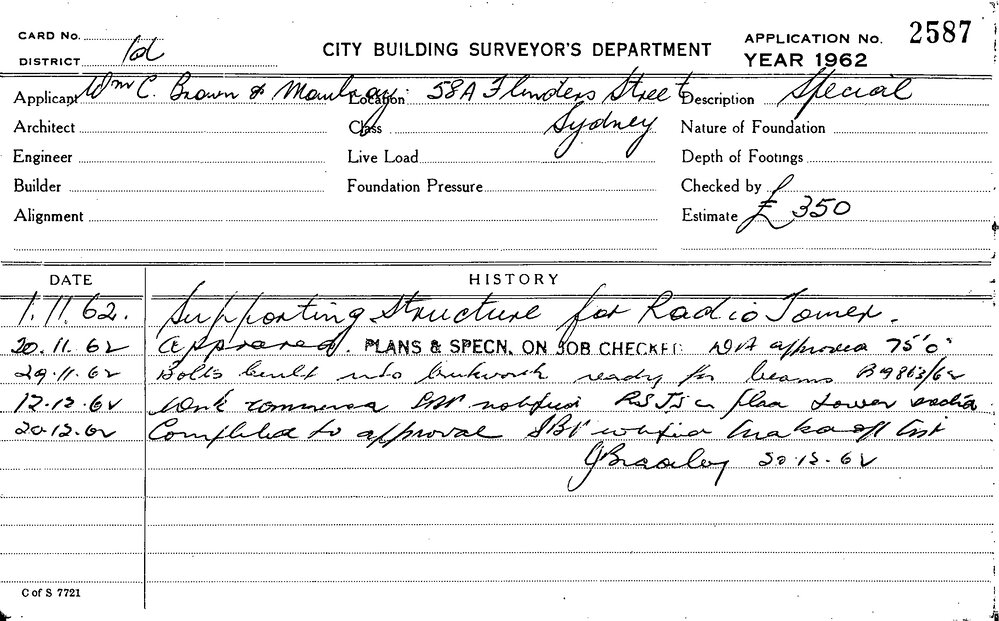 CARD No.
DISTRICT
CITY BUILDING SURVEYOR'S DEPARTMENT
APPLICATION No. 2587
YEAR 1962
Applicant Wm C. Brown &
Location 58A Flinders Street
Sydney
Description Special
Architect
Class
Nature of Foundation
Engineer
Live Load
Depth of Footings
Builder
Foundation Pressure
Checked by
Alignment
Estimate £350
DATE HISTORY
1.11.62. Supporting Structure for Radio Tower.
20.11.62 Approved. PLANS & SPECN. ON JOB CHECKED approved 75'0"
29.11.62 Bolts built into brickwork ready for beams B9863/62
12.12.62 Work notified RSJs in
20.12.62 Completed to approval
20.12.62
C of S 7721